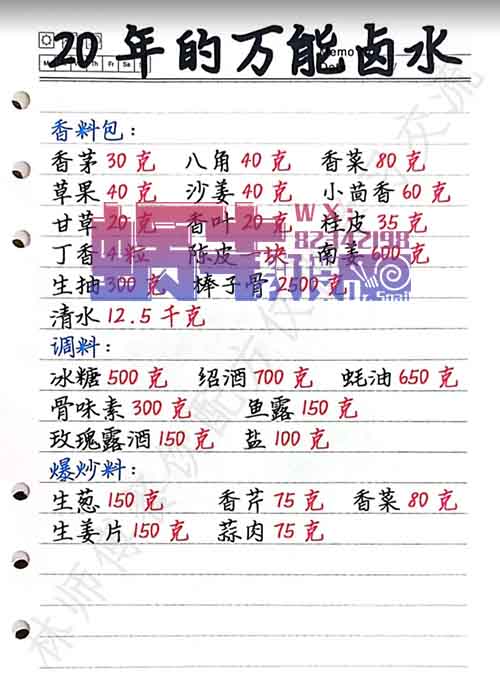 20年的万能卤水
Memo
香料包：
香茅30克 八角40克 香菜80克
草果40克 沙姜40克 小茴香60克
甘草20克 香叶20克 桂皮35克
丁香4粒 陈皮一块 南姜600克
生抽300克 棒子骨2500克
清水12.5千克
调料：
冰糖500克 绍酒700克 蚝油650克
骨味素300克 鱼露150克
玫瑰露酒150克 盐100克
爆炒料：
生葱150克 香芹75克 香菜80克
生姜片150克 蒜肉75克
WX:
82742198